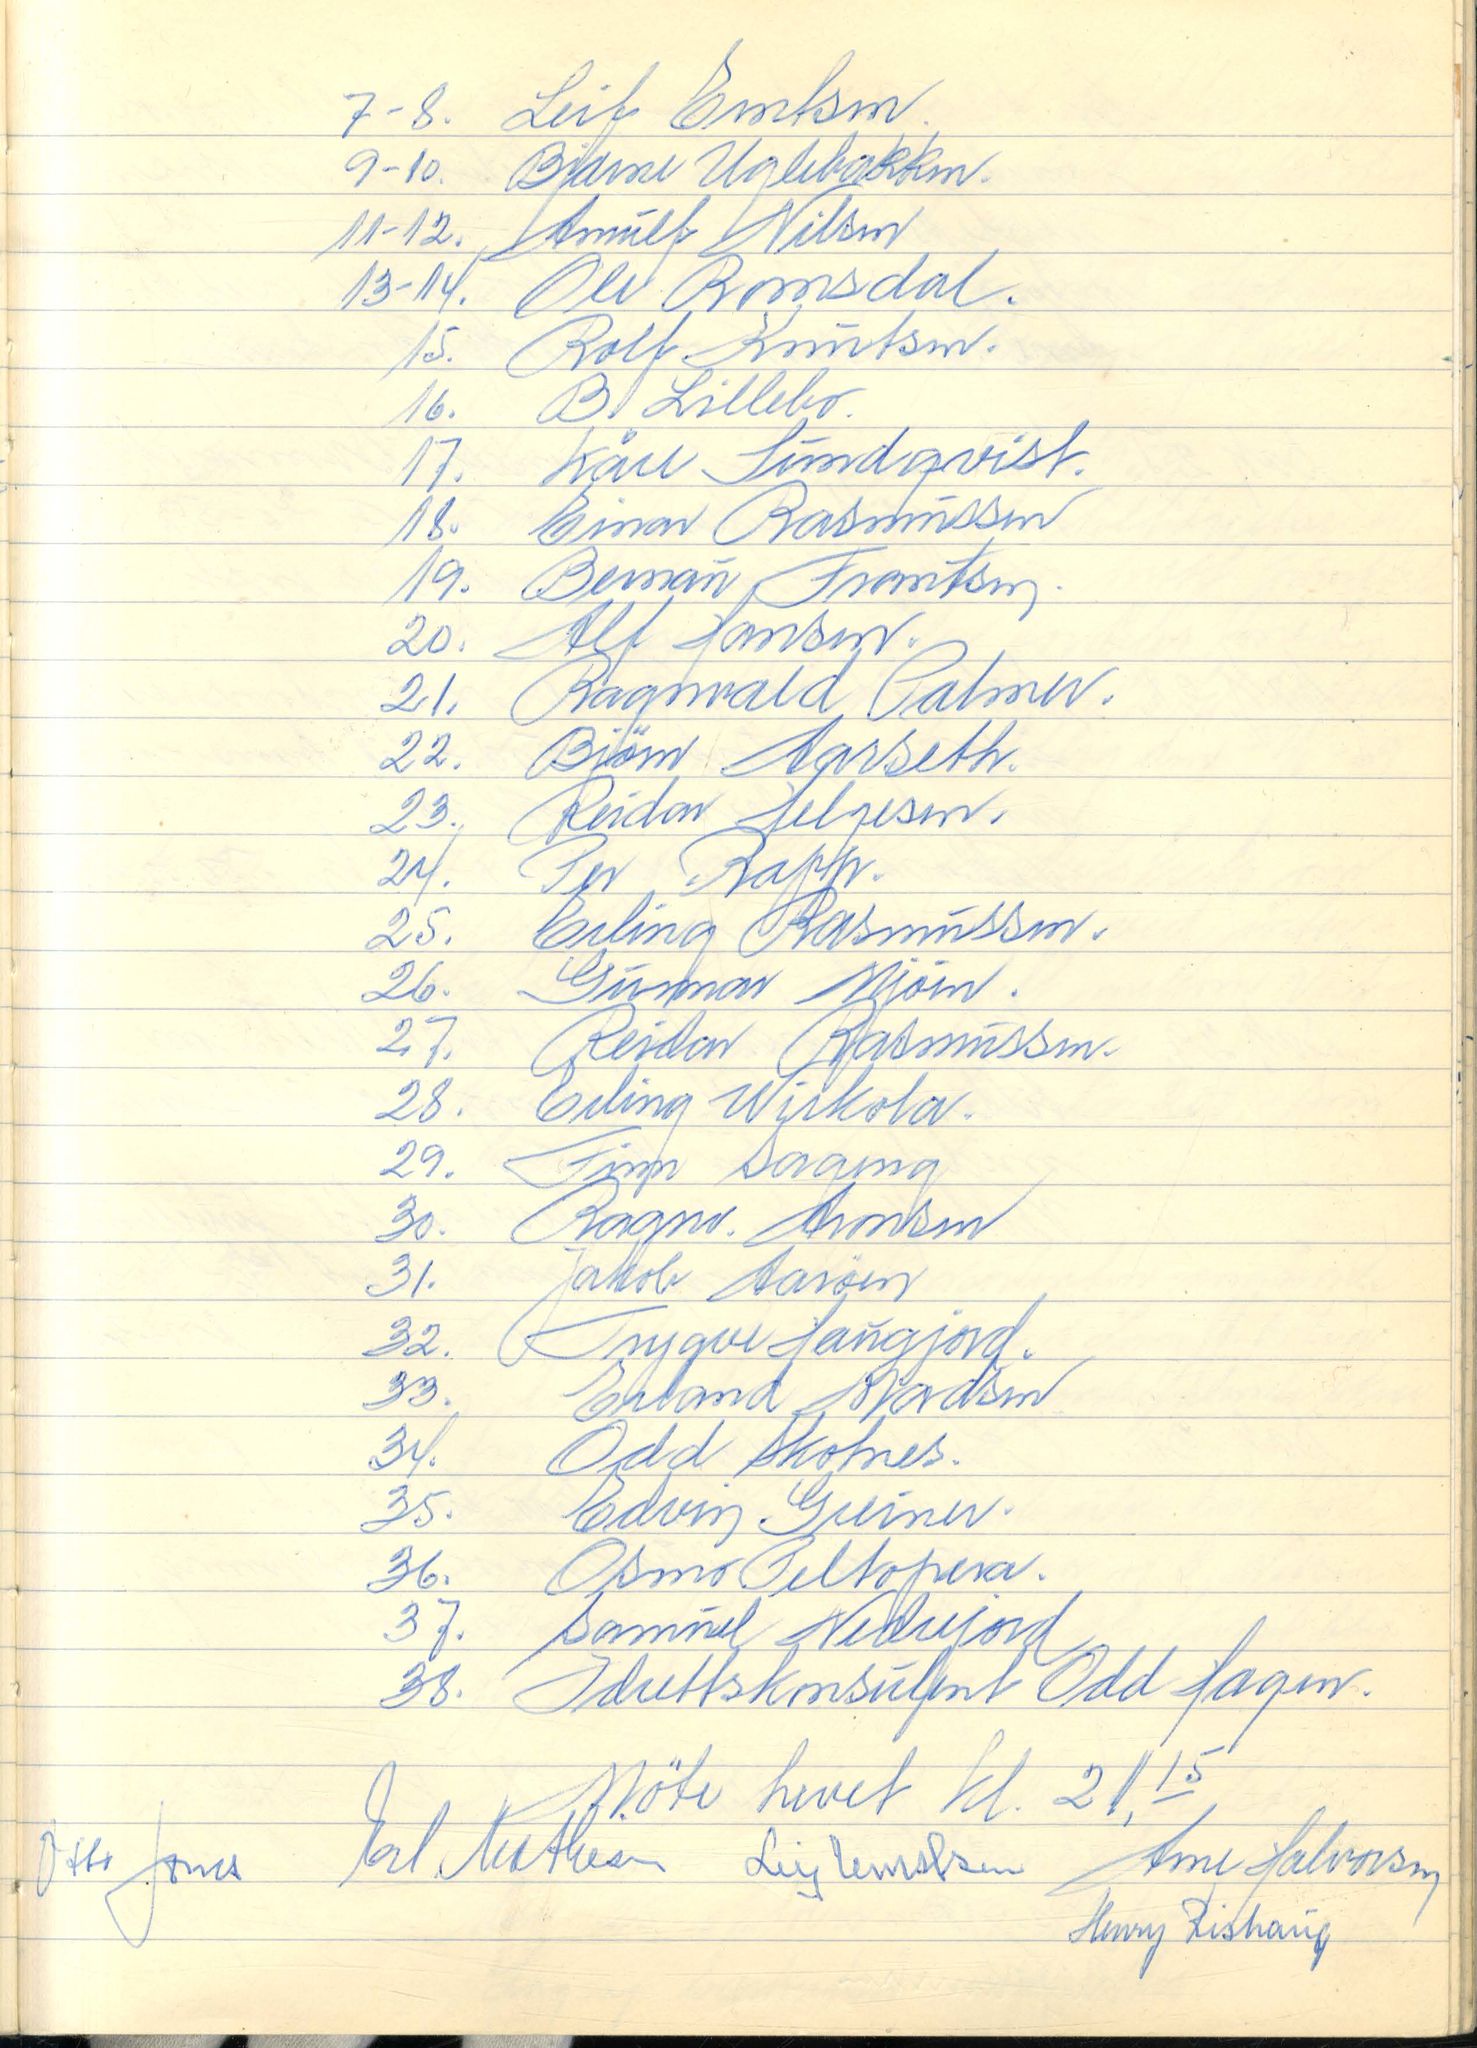 7-8. Leif Erntsen.
9-10. Bjarne Uglebakken.
11-12. Arnulf Nilsen
13-14. Ole Romsdal.
15. Rolf Knutsen.
16. B. Lillebo.
17. Kåre Sundqvist.
18. Einar Rasmussen
19. Bernau Frantsen.
20. Alf Hansen.
21. Ragnvald Palmer.
22. Björn Aarseth.
23. Reidar Helgesen.
24. Per Rapp.
25. Erling Rasmussen.
26. Gunnar Mjöen.
27. Reidar Rasmussen.
28. Erling Wirkola.
29. Finn Sageng
30. Ragnv. Aronsen
31. Jakob Aaröen
32. Trygve Haugjord.
33. Erland Mardsen
34. Odd Skolnes.
35. Edvin Greiner.
36. Osmo Peltopera.
37. Samuel Nedrejord
38. Idrettskonsulent Odd Hagen.
Möte hevet kl. 21,15
Otto Jones Erl. Mathisen Leif Arne Halvorsen
Henry Rishaug